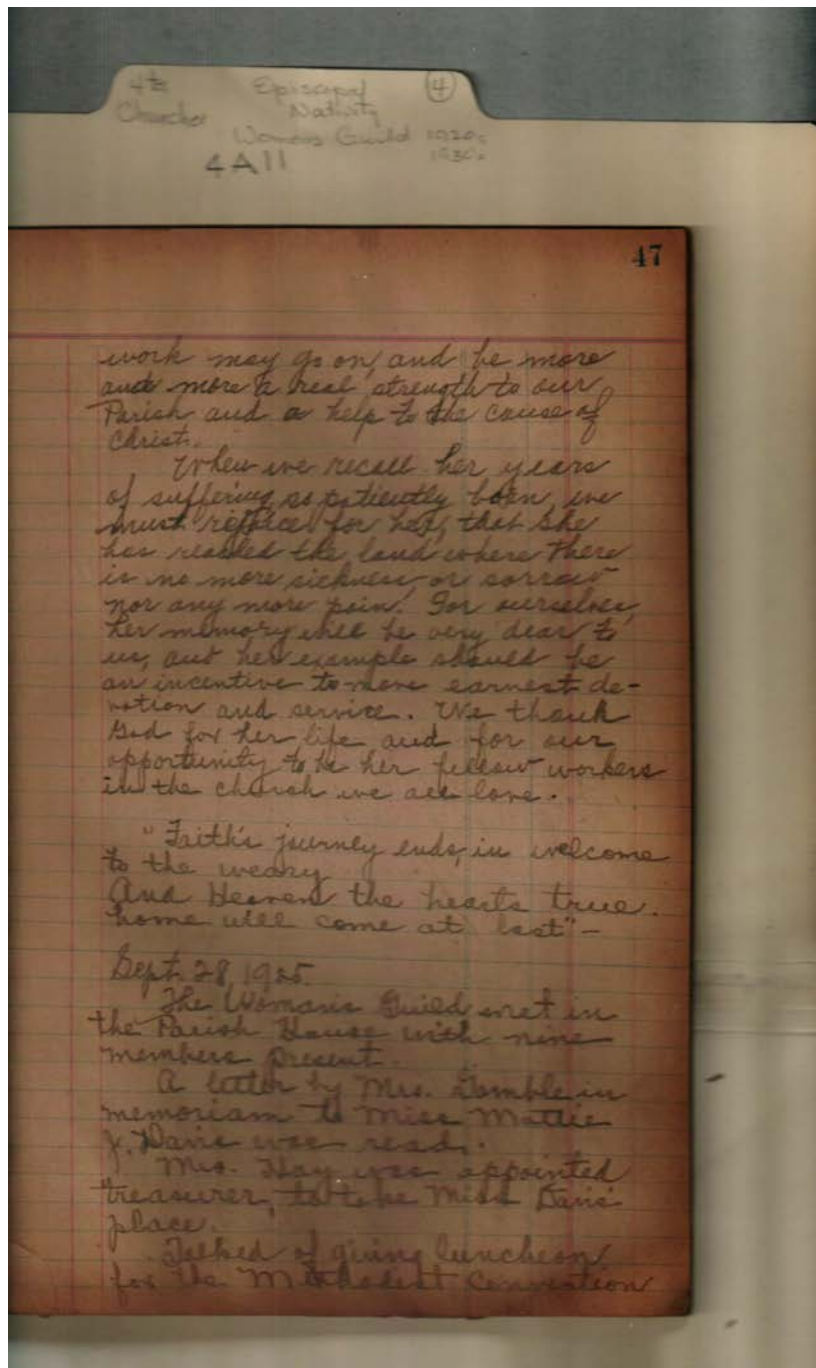 4th Episcopal 4
Churches Nativity
Womans Guild 1920s
4A11 1930s
47
work may go on, and be more
and more a real strength to our
Parish and a help to the cause of
Christ.
When we recall her years
of suffering so patiently born, we
must rejoice for her, that she
has reached the land where there
is no more sickness, or sorrow
nor any more pain. For ourselves,
her memory will be very dear to
us, and her example should be
an incentive to more earnest de-
votion and service. We thank
God for her life and for our
opportunity to be her fellow workers
in the church we all love.
"Faith's journey ends, in welcome
to the weary
And Heaven the hearts true.
home will come at last"-
Sept. 28, 1925.
The Woman's Guild met in
the Parish House with nine
members present.
A letter by Mrs. in
memoriam to Miss Mattie
J. Davis was read.
Mrs. Hay was appointed
treasurer, to take Miss Davis'
place.
Talked of giving luncheon
for the Methodist Convention